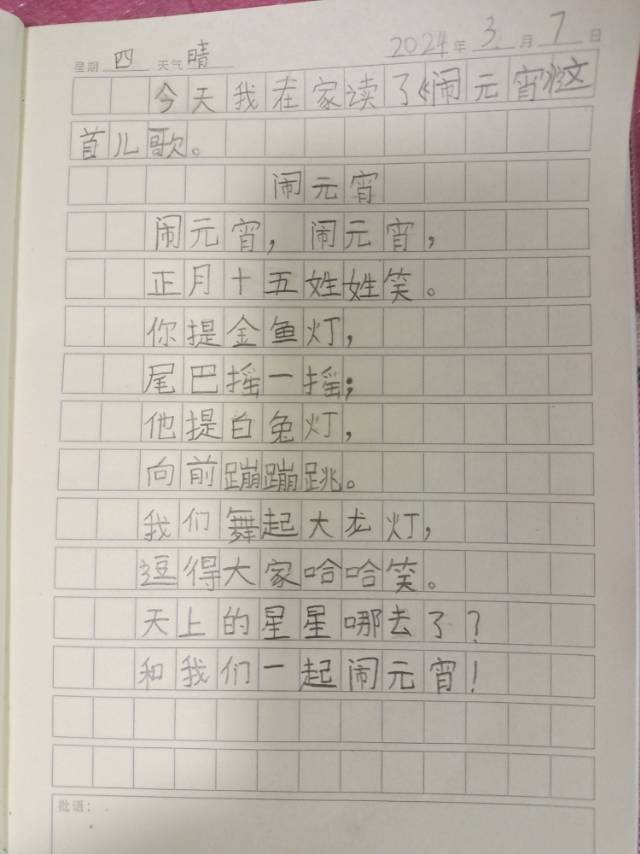 星期 四 天气 晴 2024年 3月 7日
今天我在家读了《闹元宵》这
首儿歌。
闹元宵
闹元宵，闹元宵，
正月十五姓姓笑。
你提金鱼灯，
尾巴摇一摇；
他提白兔灯，
向前蹦蹦跳。
我们舞起大龙灯，
逗得大家哈哈笑。
天上的星星哪去了？
和我们一起闹元宵！
批语：